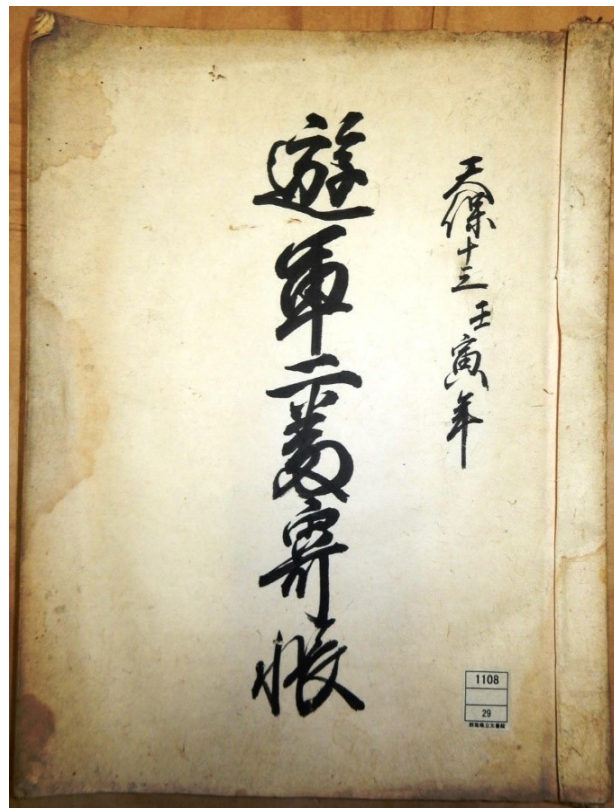 天保十三壬寅年
遊軍二寄帳
1108
29
群馬県立文書館